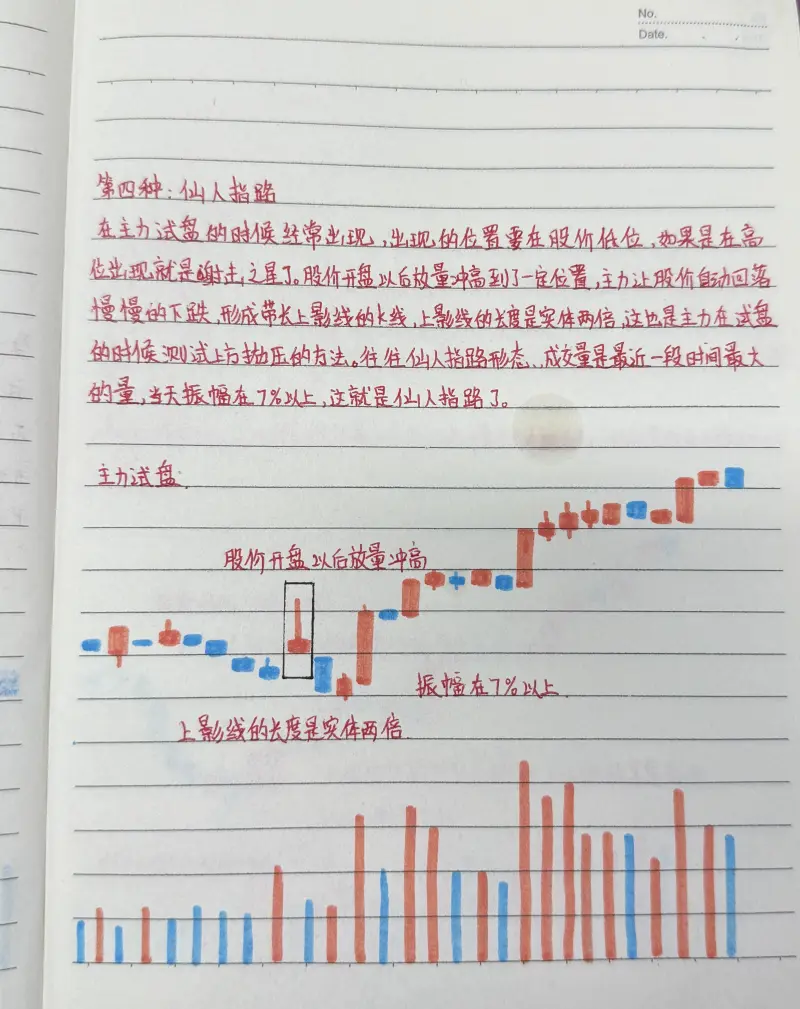 No.
Date.
第四种:仙人指路
在主力试盘的时候经常出现,出现的位置要在股价低位,如果是在高
位出现就是射击之星了。股价开盘以后放量冲高到了一定位置,主力让股价自动回落
慢慢的下跌,形成带长上影线的K线,上影线的长度是实体两倍,这也是主力在试盘
的时候测试上方抛压的方法。往往仙人指路形态,成交量是最近一段时间最大
的量,当天振幅在7%以上,这就是仙人指路了。
主力试盘.
股价开盘以后放量冲高
振幅在7%以上.
上影线的长度是实体两倍.